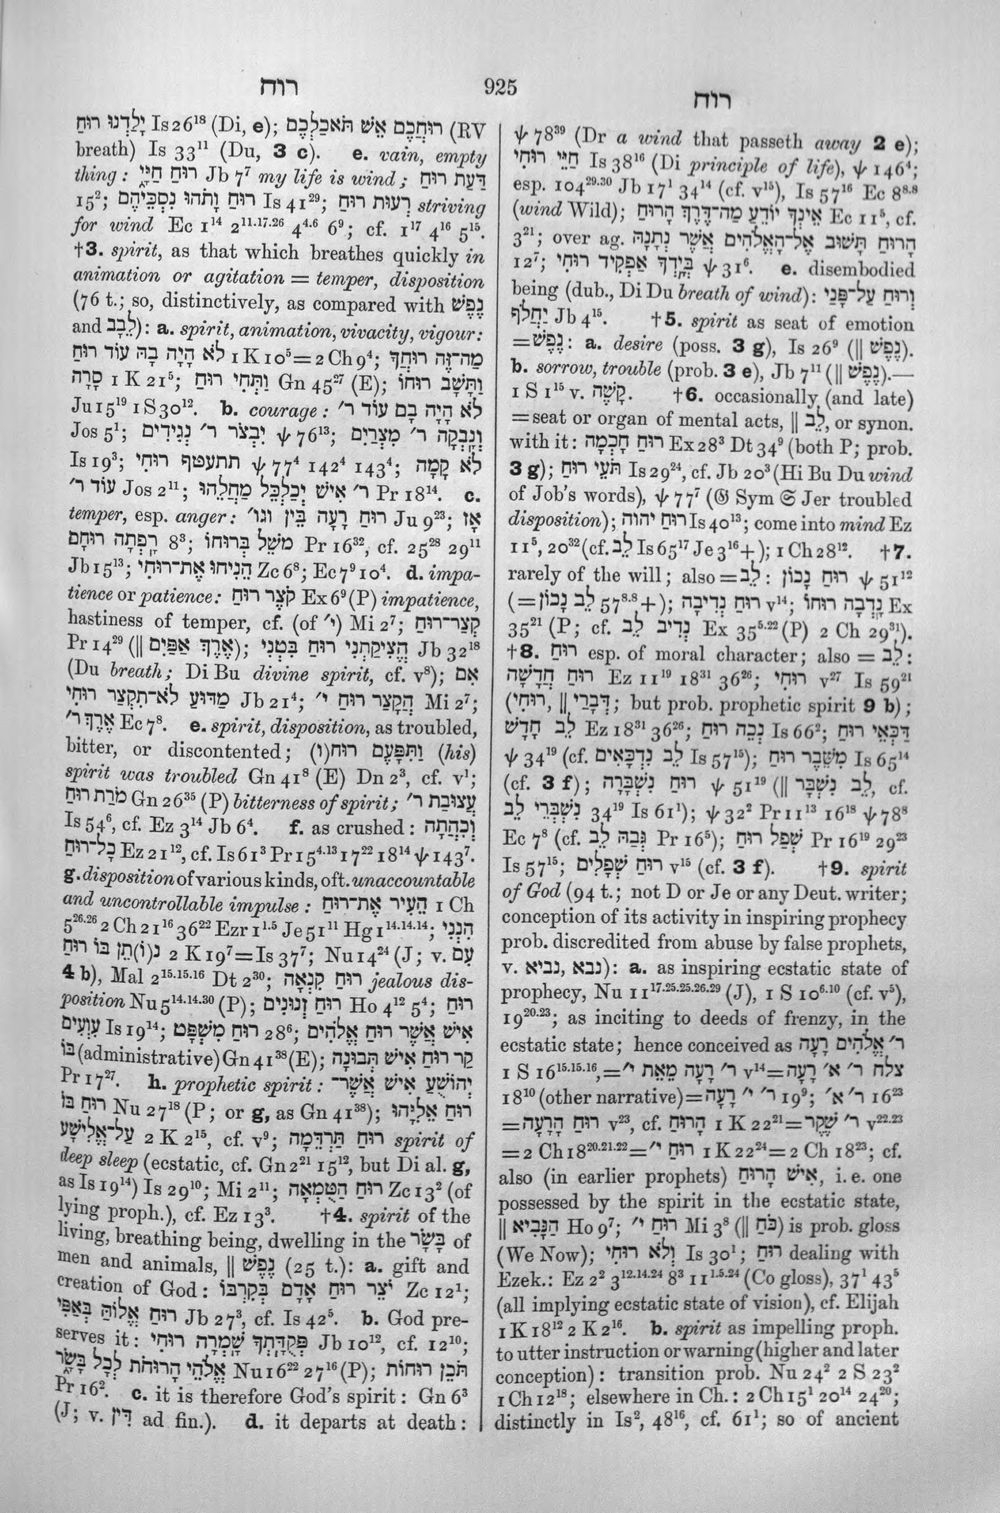 רוח
925
רוח
יָלַדְנוּ רוּחַ Is 26¹⁸ (Di, e); רוּחֲכֶם אֵשׁ תֹּאכַלְכֶם (RV
breath) Is 33¹¹ (Du, 3 c). e. vain, empty
thing: רוּחַ חַיָּי Jb 7⁷ my life is wind; דַּעַת רוּחַ
15²; רוּחַ וָתֹהוּ נִסְכֵּיהֶם Is 41²⁹; רְעוּת רוּחַ striving
for wind Ec 1¹⁴ 2¹¹·¹⁷·²⁶ 4⁴·⁶ 6⁹; cf. 1¹⁷ 4¹⁶ 5¹⁵.
†3. spirit, as that which breathes quickly in
animation or agitation = temper, disposition
(76 t.; so, distinctively, as compared with נֶפֶשׁ
and לֵבָב): a. spirit, animation, vivacity, vigour:
לֹא הָיָה בָהּ עוֹד רוּחַ 1 K 10⁵=2 Ch 9⁴; מַה־זֶּה רוּחֲךָ
סָרָה 1 K 21⁵; וַתְּחִי רוּחַ Gn 45²⁷ (E); וַתָּשָׁב רוּחוֹ
Ju 15¹⁹ 1 S 30¹². b. courage: לֹא הָיָה בָם עוֹד ר׳
Jos 5¹; יִבְצֹר ר׳ נְגִידִים ψ 76¹³; וְנָבְקָה ר׳ מִצְרַיִם
Is 19³; תתעטף רוּחִי ψ 77⁴ 142⁴ 143⁴; לֹא קָמָה
עוֹד ר׳ Jos 2¹¹; ר׳ אִישׁ יְכַלְכֵּל מַחֲלֵהוּ Pr 18¹⁴. c.
temper, esp. anger: רוּחַ רָעָה בֵּין וגו׳ Ju 9²³; אָז
רָפְתָה רוּחָם 8³; מֹשֵׁל בְּרוּחוֹ Pr 16³², cf. 25²⁸ 29¹¹
Jb 15¹³; הֵנִיחוּ אֶת־רוּחִי Zc 6⁸; Ec 7⁹ 10⁴. d. impa-
tience or patience: קֹצֶר רוּחַ Ex 6⁹ (P) impatience,
hastiness of temper, cf. (of י׳) Mi 2⁷; קְצַר־רוּחַ
Pr 14²⁹ (|| אֶרֶךְ אַפַּיִם); הֱצִיקַתְנִי רוּחַ בִּטְנִי Jb 32¹⁸
(Du breath; Di Bu divine spirit, cf. v⁸); אִם
מַדּוּעַ לֹא־תִקְצַר רוּחִי Jb 21⁴; הֲקָצַר רוּחַ י׳ Mi 2⁷;
אֶרֶךְ ר׳ Ec 7⁸. e. spirit, disposition, as troubled,
bitter, or discontented; וַתִּפָּעֶם רוּח(וֹ) (his)
spirit was troubled Gn 41⁸ (E) Dn 2³, cf. v¹;
מֹרַת רוּחַ Gn 26³⁵ (P) bitterness of spirit; עֲצוּבַת ר׳
Is 54⁶, cf. Ez 3¹⁴ Jb 6⁴. f. as crushed: וְכִהֲתָה
כָל־רוּחַ Ez 21¹², cf. Is 61³ Pr 15⁴·¹³ 17²² 18¹⁴ ψ 143⁷.
g. disposition of various kinds, oft. unaccountable
and uncontrollable impulse: הֵעִיר אֶת־רוּחַ 1 Ch
5²⁶·²⁶ 2 Ch 21¹⁶ 36²² Ezr 1¹·⁵ Je 51¹¹ Hg 1¹⁴·¹⁴·¹⁴; הִנְנִי
נ(וֹ)תֵן בּוֹ רוּחַ 2 K 19⁷=Is 37⁷; Nu 14²⁴ (J; v. עִם
4 b), Mal 2¹⁵·¹⁵·¹⁶ Dt 2³⁰; רוּחַ קִנְאָה jealous dis-
position Nu 5¹⁴·¹⁴·³⁰ (P); רוּחַ זְנוּנִים Ho 4¹² 5⁴; רוּחַ
עִוְעִים Is 19¹⁴; רוּחַ מִשְׁפָּט 28⁶; אִישׁ אֲשֶׁר רוּחַ אֱלֹהִים
בּוֹ (administrative) Gn 41³⁸ (E); קַר רוּחַ אִישׁ תְּבוּנָה
Pr 17²⁷. h. prophetic spirit: יְהוֹשֻׁעַ אִישׁ אֲשֶׁר־
רוּחַ בּוֹ Nu 27¹⁸ (P; or g, as Gn 41³⁸); רוּחַ אֵלִיָּהוּ
עַל־אֱלִישָׁע 2 K 2¹⁵, cf. v⁹; רוּחַ תַּרְדֵּמָה spirit of
deep sleep (ecstatic, cf. Gn 2²¹ 15¹², but Di al. g,
as Is 19¹⁴) Is 29¹⁰; Mi 2¹¹; רוּחַ הַטֻּמְאָה Zc 13² (of
lying proph.), cf. Ez 13³. †4. spirit of the
living, breathing being, dwelling in the בָּשָׂר of
men and animals, || נֶפֶשׁ (25 t.): a. gift and
creation of God: יֹצֵר רוּחַ אָדָם בְּקִרְבּוֹ Zc 12¹;
רוּחַ אֱלוֹהַּ בְּאַפִּי Jb 27³, cf. Is 42⁵. b. God pre-
serves it: פְּקֻדָּתְךָ שָׁמְרָה רוּחִי Jb 10¹², cf. 12¹⁰;
אֱלֹהֵי הָרוּחֹת לְכָל בָּשָׂר Nu 16²² 27¹⁶ (P); תֹּכֵן רוּחוֹת
Pr 16². c. it is therefore God's spirit: Gn 6³
(J; v. דִּין ad fin.). d. it departs at death:
ψ 78³⁹ (Dr a wind that passeth away 2 e);
חַיֵּי רוּחִי Is 38¹⁶ (Di principle of life), ψ 146⁴;
esp. 104²⁹·³⁰ Jb 17¹ 34¹⁴ (cf. v¹⁵), Is 57¹⁶ Ec 8⁸·⁸
(wind Wild); אֵינְךָ יוֹדֵעַ מַה־דֶּרֶךְ הָרוּחַ Ec 11⁵, cf.
3²¹; over ag. הָרוּחַ תָּשׁוּב אֶל־הָאֱלֹהִים אֲשֶׁר נְתָנָהּ
12⁷; בְּיָדְךָ אַפְקִיד רוּחִי ψ 31⁶. e. disembodied
being (dub., Di Du breath of wind): וְרוּחַ עַל־פָּנַי
יַחֲלֹף Jb 4¹⁵. †5. spirit as seat of emotion
=נֶפֶשׁ: a. desire (poss. 3 g), Is 26⁹ (|| נֶפֶשׁ).
b. sorrow, trouble (prob. 3 e), Jb 7¹¹ (|| נֶפֶשׁ).—
1 S 1¹⁵ v. קָשֶׁה. †6. occasionally (and late)
=seat or organ of mental acts, || לֵב, or synon.
with it: רוּחַ חָכְמָה Ex 28³ Dt 34⁹ (both P; prob.
3 g); תֹּעֵי רוּחַ Is 29²⁴, cf. Jb 20³ (Hi Bu Du wind
of Job's words), ψ 77⁷ (𝔊 Sym 𝔖 Jer troubled
disposition); רוּחַ יהוה Is 40¹³; come into mind Ez
11⁵, 20³² (cf. לֵב Is 65¹⁷ Je 3¹⁶+); 1 Ch 28¹². †7.
rarely of the will; also=לֵב: רוּחַ נָכוֹן ψ 51¹²
(=לֵב נָכוֹן 57⁸·⁸+); רוּחַ נְדִיבָה v¹⁴; נָדְבָה רוּחוֹ Ex
35²¹ (P; cf. נְדִיב לֵב Ex 35⁵·²² (P) 2 Ch 29³¹).
†8. רוּחַ esp. of moral character; also = לֵב:
רוּחַ חֲדָשָׁה Ez 11¹⁹ 18³¹ 36²⁶; רוּחִי v²⁷ Is 59²¹
(רוּחִי, || דְּבָרַי; but prob. prophetic spirit 9 b);
לֵב חָדָשׁ Ez 18³¹ 36²⁶; נְכֵה רוּחַ Is 66²; דַּכְּאֵי רוּחַ
ψ 34¹⁹ (cf. לֵב נִדְכָּאִים Is 57¹⁵); מִשֵּׁבֶר רוּחַ Is 65¹⁴
(cf. 3 f); רוּחַ נִשְׁבָּרָה ψ 51¹⁹ (|| לֵב נִשְׁבָּר, cf.
נִשְׁבְּרֵי לֵב 34¹⁹ Is 61¹); ψ 32² Pr 11¹³ 16¹⁸ ψ 78⁸
Ec 7⁸ (cf. גְּבַהּ לֵב Pr 16⁵); שְׁפַל רוּחַ Pr 16¹⁹ 29²³
Is 57¹⁵; רוּחַ שְׁפָלִים v¹⁵ (cf. 3 f). †9. spirit
of God (94 t.; not D or Je or any Deut. writer;
conception of its activity in inspiring prophecy
prob. discredited from abuse by false prophets,
v. נבא, נביא): a. as inspiring ecstatic state of
prophecy, Nu 11¹⁷·²⁵·²⁵·²⁶·²⁹ (J), 1 S 10⁶·¹⁰ (cf. v⁵),
19²⁰·²³; as inciting to deeds of frenzy, in the
ecstatic state; hence conceived as ר׳ אֱלֹהִים רָעָה
1 S 16¹⁵·¹⁵·¹⁶,=ר׳ רָעָה מֵאֵת י׳ v¹⁴=צלח ר׳ א׳ רָעָה
18¹⁰ (other narrative)=ר׳ י׳ רָעָה 19⁹; ר׳ א׳ 16²³
=רוּחַ הָרָעָה v²³, cf. הָרוּחַ 1 K 22²¹=ר׳ שֶׁקֶר v²²·²³
=2 Ch 18²⁰·²¹·²²=רוּחַ י׳ 1 K 22²⁴=2 Ch 18²³; cf.
also (in earlier prophets) אִישׁ הָרוּחַ, i. e. one
possessed by the spirit in the ecstatic state,
|| הַנָּבִיא Ho 9⁷; רוּחַ י׳ Mi 3⁸ (|| כֹּחַ) is prob. gloss
(We Now); וְלֹא רוּחִי Is 30¹; רוּחַ dealing with
Ezek.: Ez 2² 3¹²·¹⁴·²⁴ 8³ 11¹·⁵·²⁴ (Co gloss), 37¹ 43⁵
(all implying ecstatic state of vision), cf. Elijah
1 K 18¹² 2 K 2¹⁶. b. spirit as impelling proph.
to utter instruction or warning (higher and later
conception): transition prob. Nu 24² 2 S 23²
1 Ch 12¹⁸; elsewhere in Ch.: 2 Ch 15¹ 20¹⁴ 24²⁰;
distinctly in Is², 48¹⁶, cf. 61¹; so of ancient